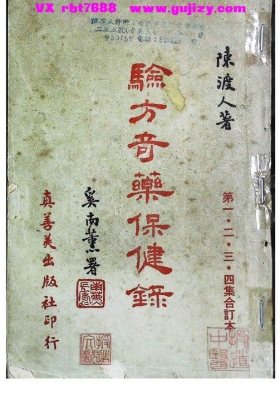 VX rbt7688 www.gujizy.com
陳渡人著
驗方奇藥保健錄
第一·二·三·四集合訂本
奚南薰署
真善美出版社印行